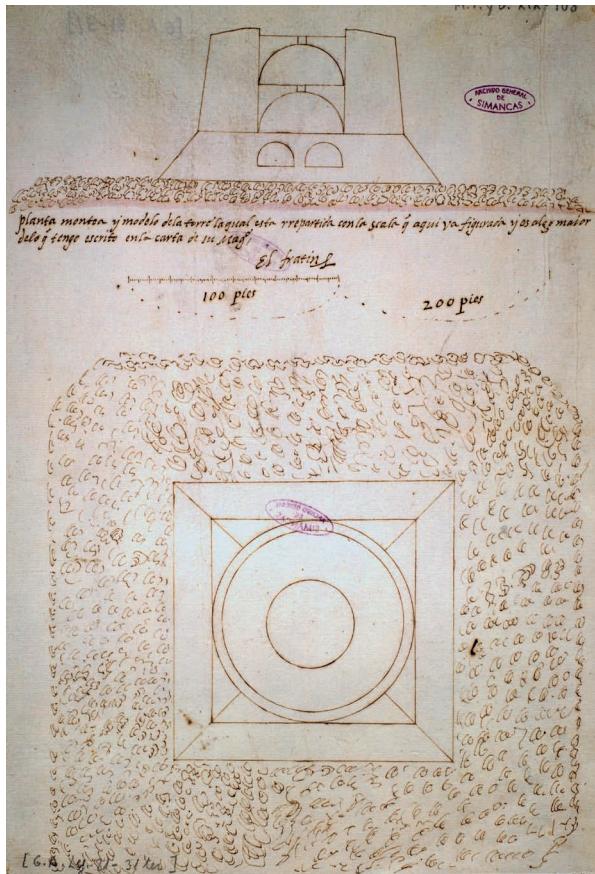 M.P.y D. XIX-108
ARCHIVO GENERAL
DE
SIMANCAS
planta montea y modelo dela torre laqual esta rrepartida con la scala q̃ aqui va figurada y es algo maior
delo q̃ tengo escrito en la carta de su Mag.
El fratin
100 pies
200 pies
[G.A. Leg. 81-